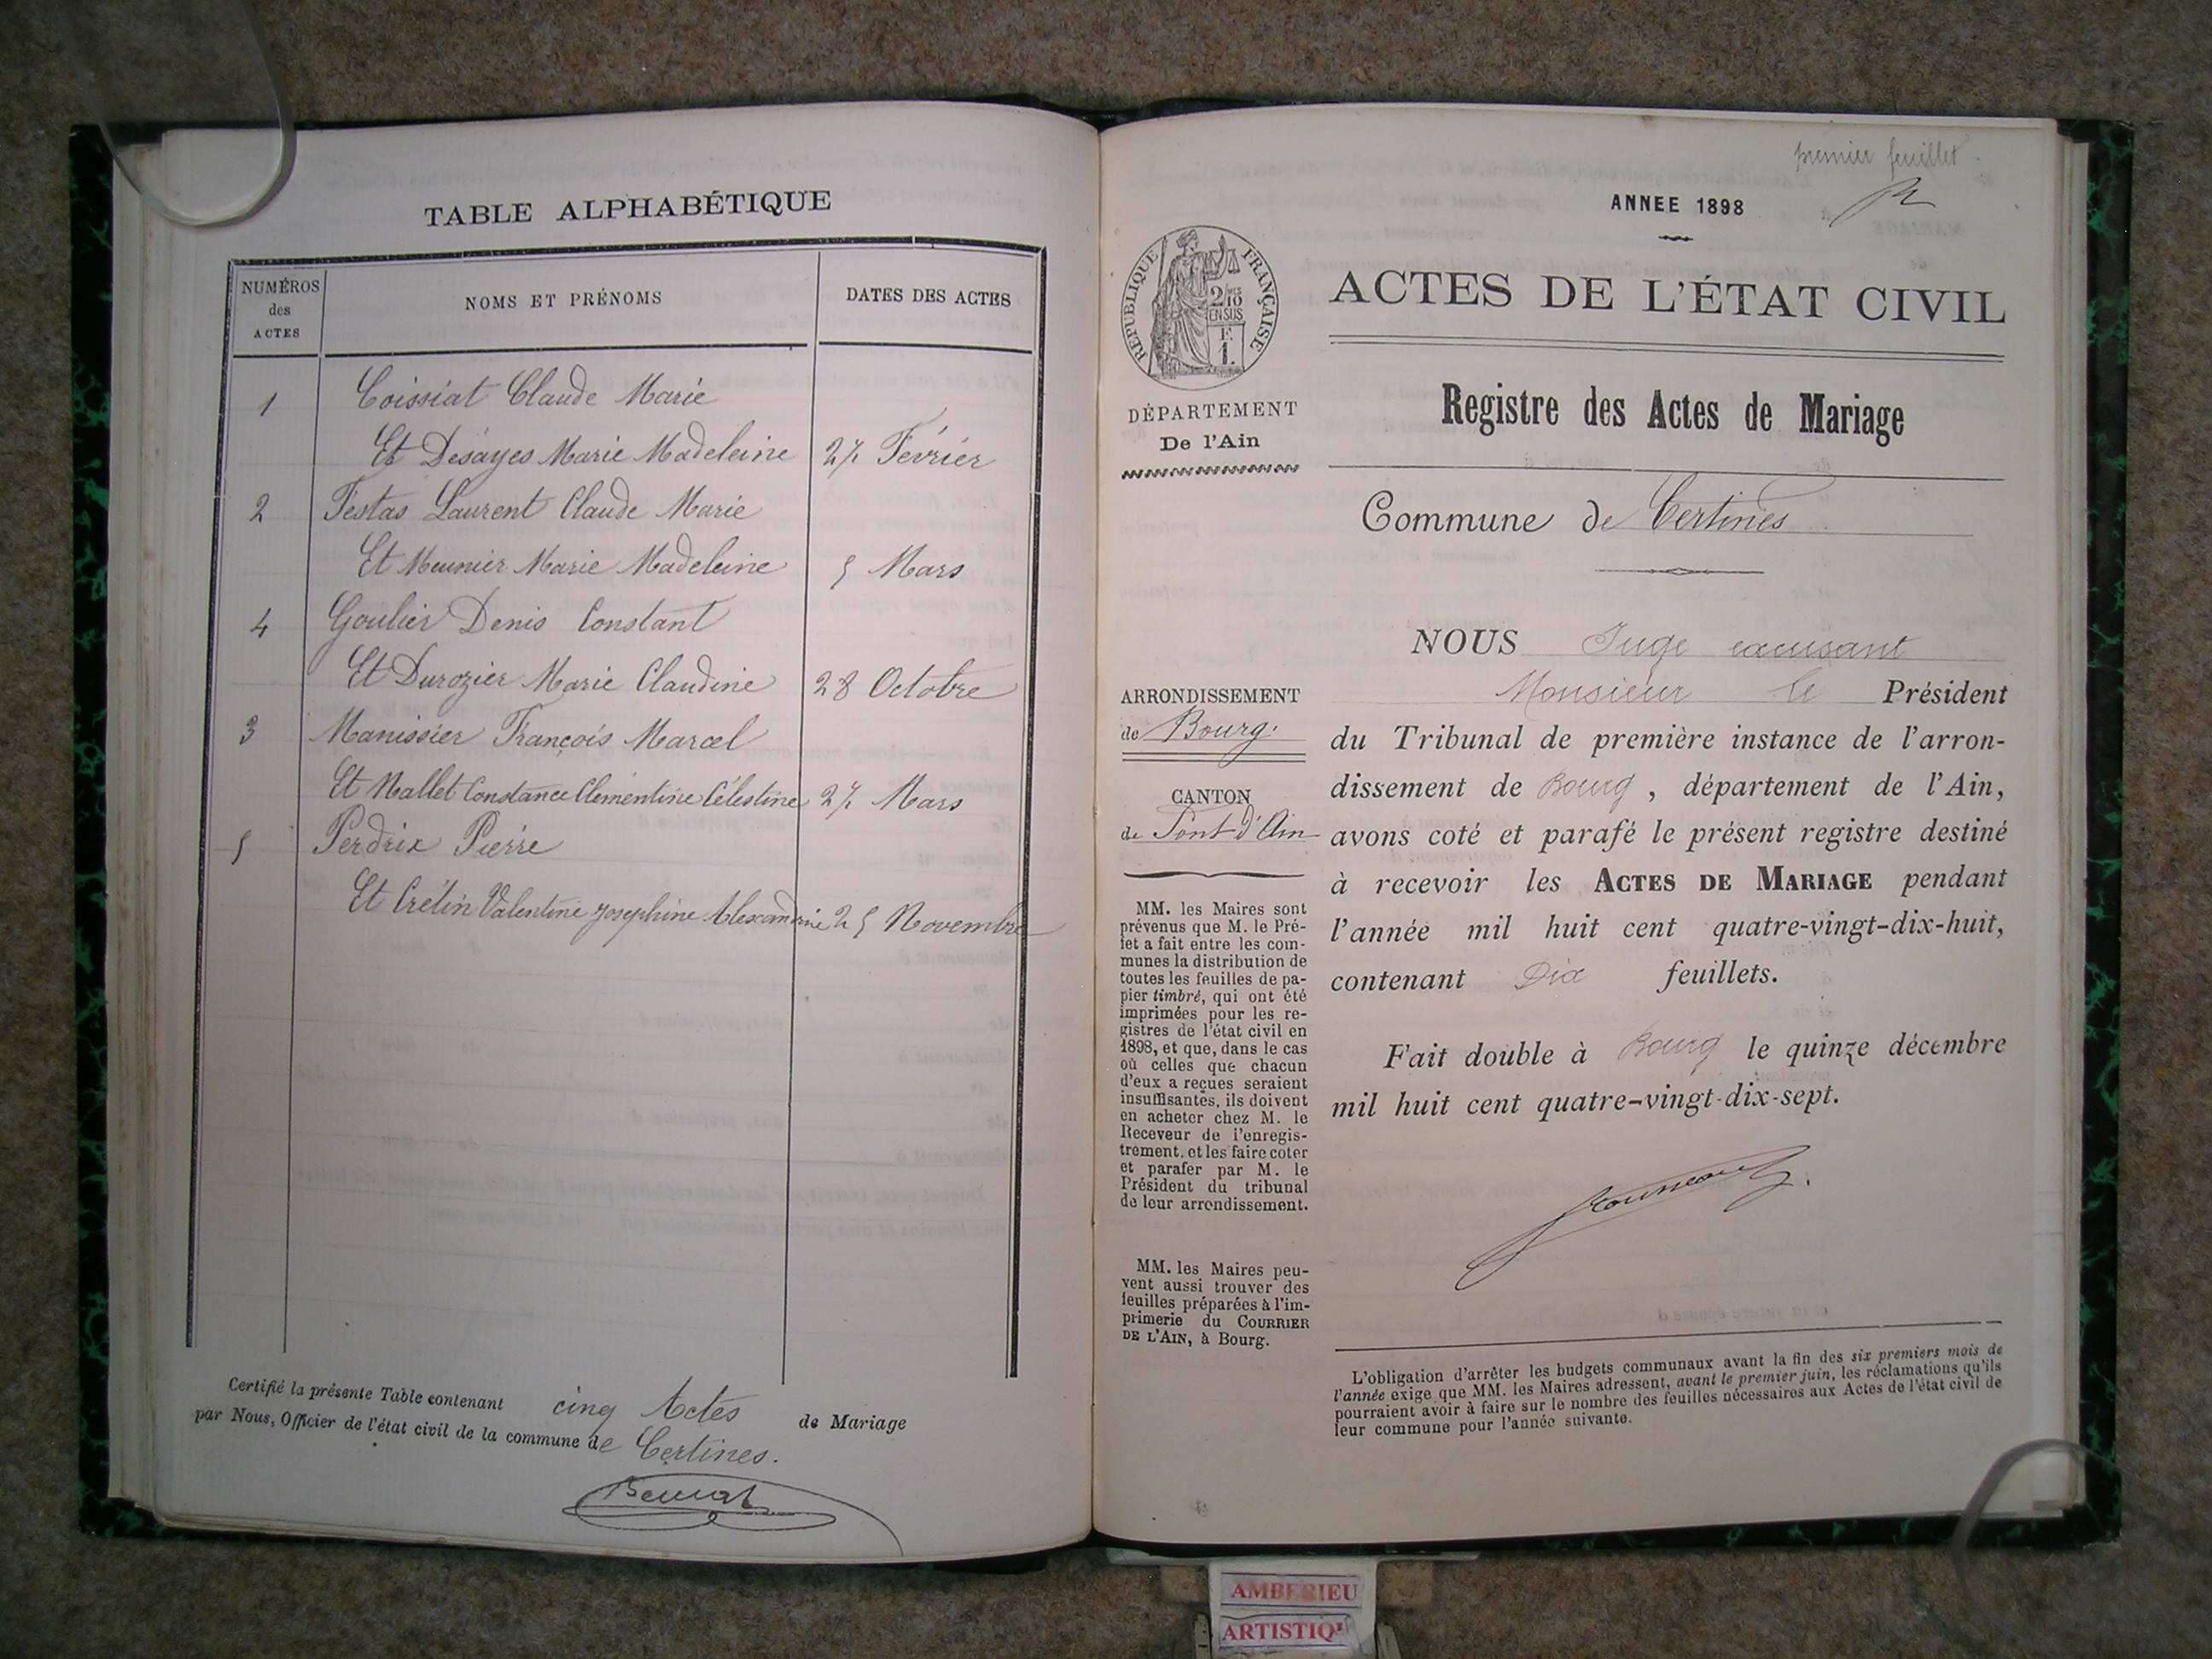 TABLE ALPHABÉTIQUE
NUMÉROS des ACTES
NOMS ET PRÉNOMS
DATES DES ACTES
1 Coissiat Claude Marie
Et Desayes Marie Madeleine 27 Février
2 Festas Laurent Claude Marie
Et Meunier Marie Madeleine 5 Mars
4 Goulier Denis Constant
Et Durozier Marie Claudine 28 Octobre
3 Manissier François Marcel
Et Mallet Constance Clémentine Célestine 27 Mars
5 Perdrix Pierre
Et Crétin Valentine Josephine Alexandrine 25 Novembre
Certifié la présente Table contenant cinq Actes de Mariage
par Nous, Officier de l'état civil de la commune de Certines.
premier feuillet
ANNEE 1898
RÉPUBLIQUE FRANÇAISE
2/10
EN SUS
F.
1.
ACTES DE L'ÉTAT CIVIL
DÉPARTEMENT
De l'Ain
Registre des Actes de Mariage
Commune de Certines
ARRONDISSEMENT
de Bourg.
CANTON
de Pont d'Ain
MM. les Maires sont
prévenus que M. le Pré-
fet a fait entre les com-
munes la distribution de
toutes les feuilles de pa-
pier timbré, qui ont été
imprimées pour les re-
gistres de l'état civil en
1898, et que, dans le cas
où celles que chacun
d'eux a reçues seraient
insuffisantes, ils doivent
en acheter chez M. le
Receveur de l'enregis-
trement, et les faire coter
et parafer par M. le
Président du tribunal
de leur arrondissement.
MM. les Maires peu-
vent aussi trouver des
feuilles préparées à l'im-
primerie du COURRIER
DE L'AIN, à Bourg.
NOUS Juge excusant
Monsieur le Président
du Tribunal de première instance de l'arron-
dissement de Bourg, département de l'Ain,
avons coté et parafé le présent registre destiné
à recevoir les ACTES DE MARIAGE pendant
l'année mil huit cent quatre-vingt-dix-huit,
contenant Dix feuillets.
Fait double à Bourg le quinze décembre
mil huit cent quatre-vingt-dix-sept.
L'obligation d'arrêter les budgets communaux avant la fin des six premiers mois de
l'année exige que MM. les Maires adressent, avant le premier juin, les réclamations qu'ils
pourraient avoir à faire sur le nombre des feuilles nécessaires aux Actes de l'état civil de
leur commune pour l'année suivante.
AMBERIEU
ARTISTIQ